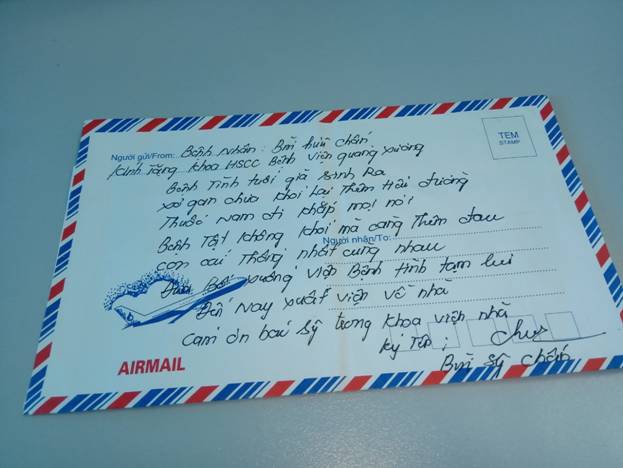 Người gửi/From: Bệnh nhân: Bùi hữu chấn
TEM
STAMP
Kính Tặng Khoa HSCC Bệnh viện quảng xương
Bệnh Tình tuổi già sinh Ra
xơ gan chưa khỏi lại Thêm Hải đường
Thuốc nam đi khắp mọi nơi
Bệnh Tật không khỏi mà càng Thêm đau
Người nhận/To:
con cái Thống nhất cùng nhau
Đưa xuống viện Bệnh tình tạm lui
Đến nay xuất viện về nhà
Cảm ơn bác sỹ trong khoa viện nhà
ký Tên:
AIRMAIL
Bùi sỹ chấn